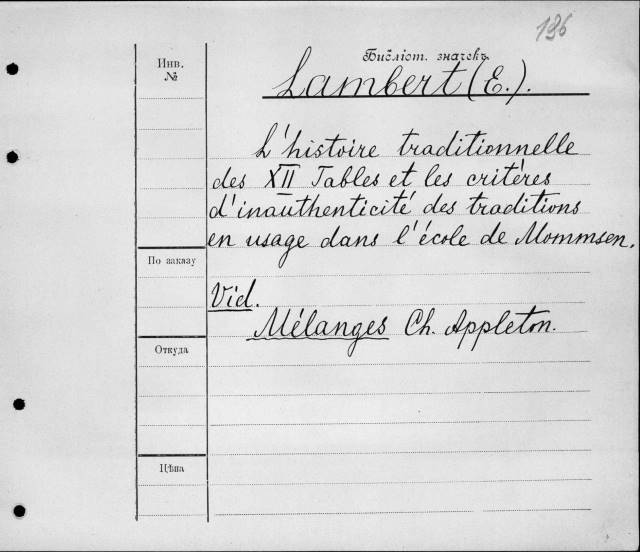 136
Библіот. значекъ
Инв. №
Lambert (E.).
L'histoire traditionnelle
des XII Tables et les critères
d'inauthenticité des traditions
en usage dans l'école de Mommsen.
По заказу
Vid.
Mélanges Ch. Appleton.
Откуда
Цѣна